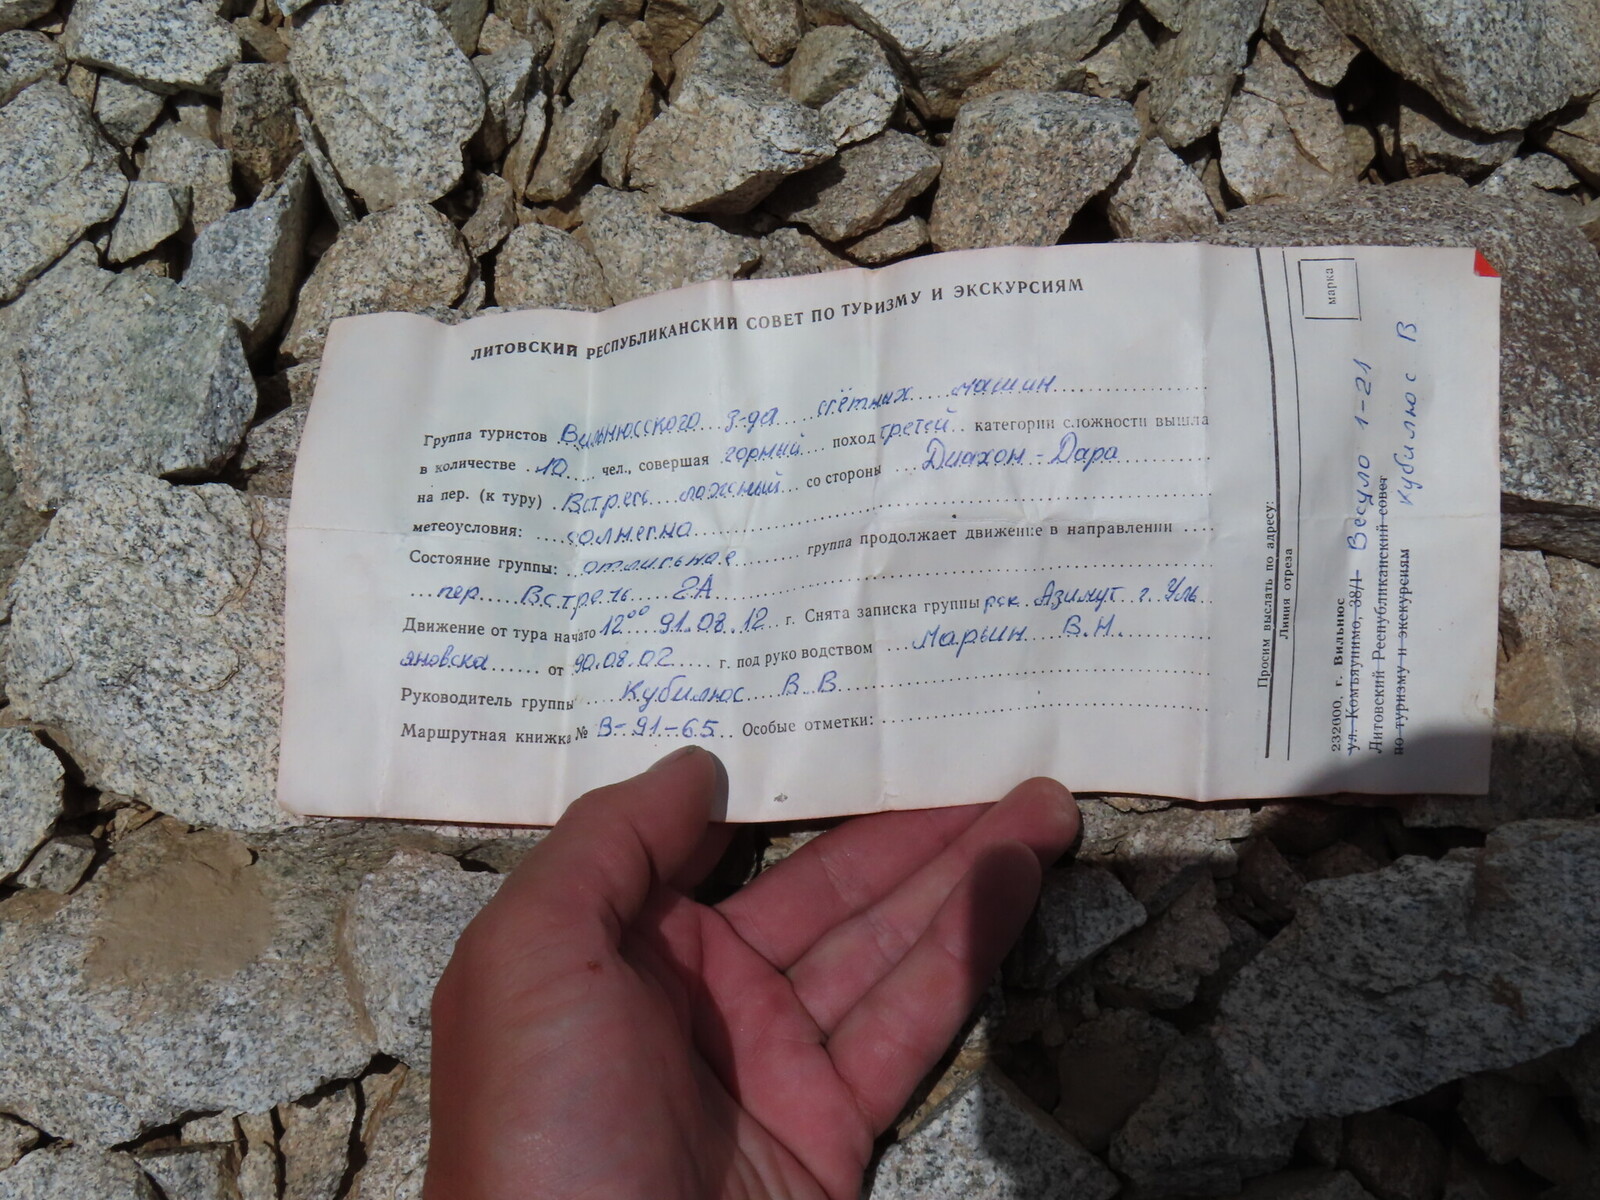 ЛИТОВСКИЙ РЕСПУБЛИКАНСКИЙ СОВЕТ ПО ТУРИЗМУ И ЭКСКУРСИЯМ
Группа туристов Вильнюсского з-да счётных машин
в количестве 10 чел., совершая горный поход третей категории сложности вышла
на пер. (к туру) Встреч ложный со стороны Диахон-Дара
метеоусловия: солнечно
Состояние группы: отличное группа продолжает движение в направлении
пер. Встреч 2А
Движение от тура начато 12⁰⁰ 91.08.12 г. Снята записка группы рск Азимут г. Уль
яновска от 90.08.02 г. под руководством Марьин В.Н.
Руководитель группы Кубилюс В В.
Маршрутная книжка № В-91-65 Особые отметки:
Просим выслать по адресу:
Линия отреза
марка
232600, г. Вильнюс
ул. Комъяунимо, 38/1 Весуло 1-21
Литовский Республиканский совет
по туризму и экскурсиям Кубилюс В